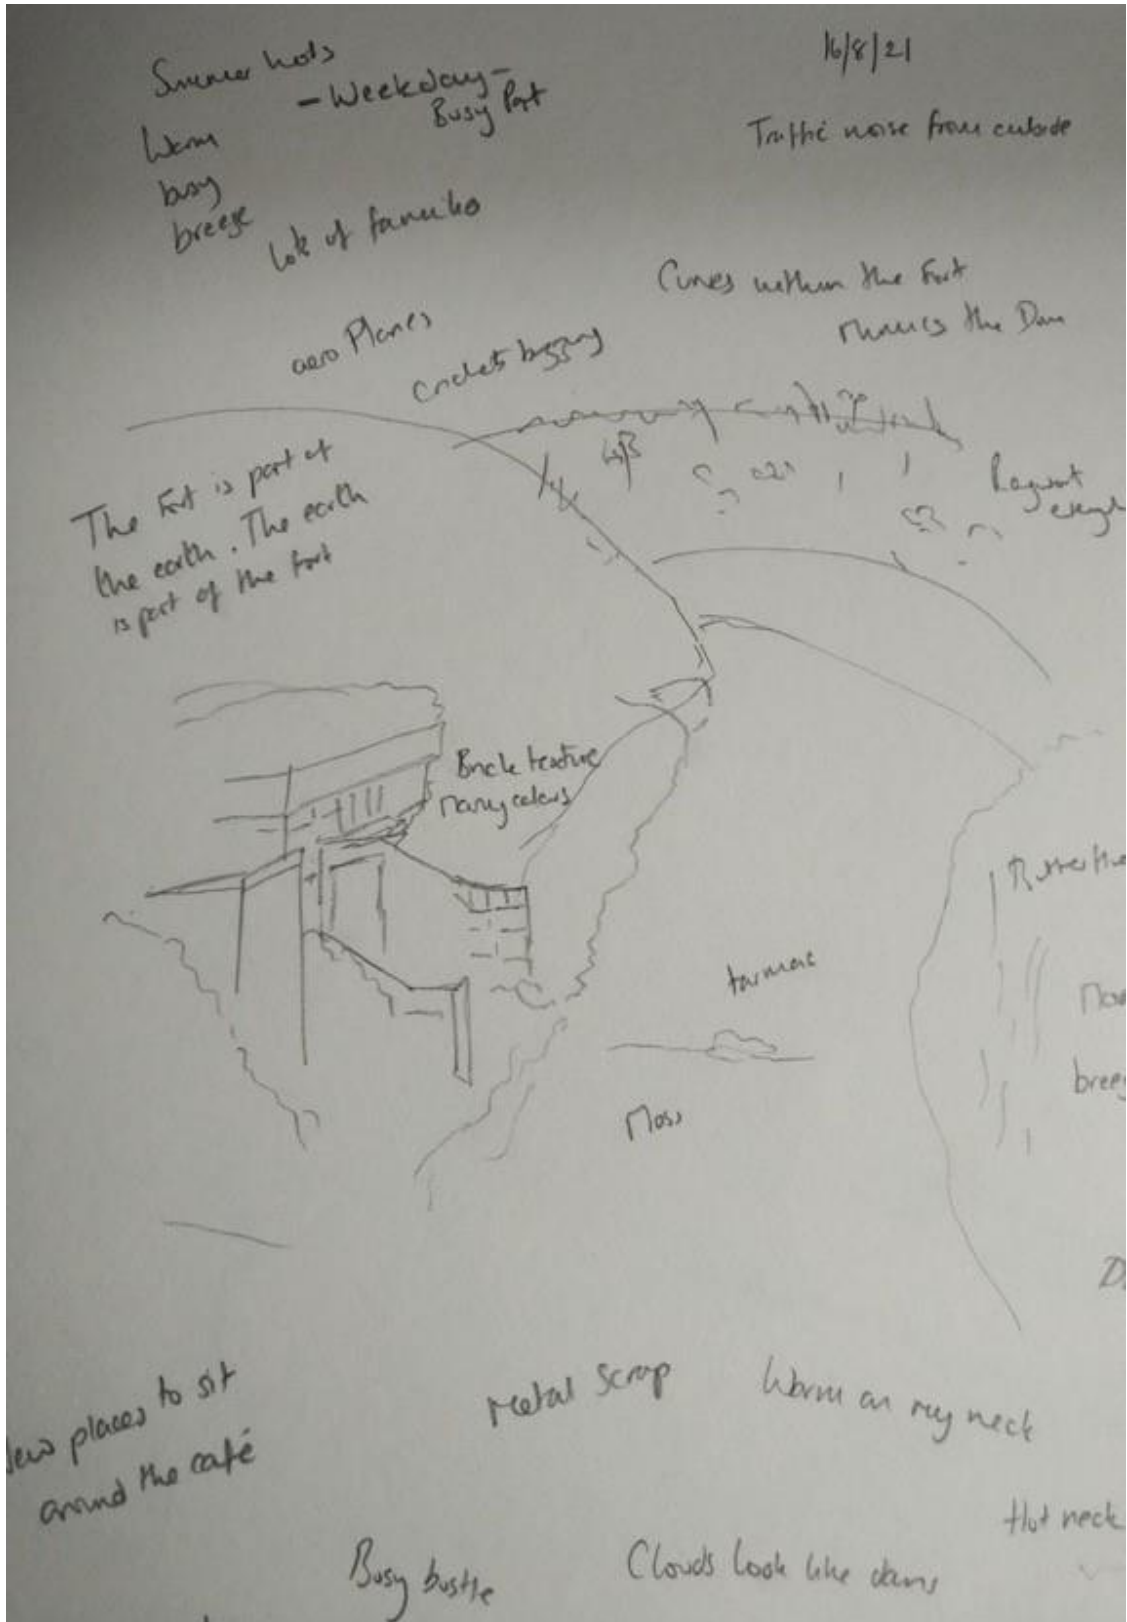 Summer hols
- Weekday -
Busy Part
16/8/21
Warm
busy
breeze
Traffic noise from outside
Lots of families
Curves within the Fort
mimics the
aero Planes
Crickets buzzing
The Fort is part of
the earth. The earth
is part of the fort
Ragwort
Brick texture
Many colours
tarmac
Moss
places to sit
around the café
Metal Scrap
Warm on my neck
Hot neck
Busy bustle
Clouds look like